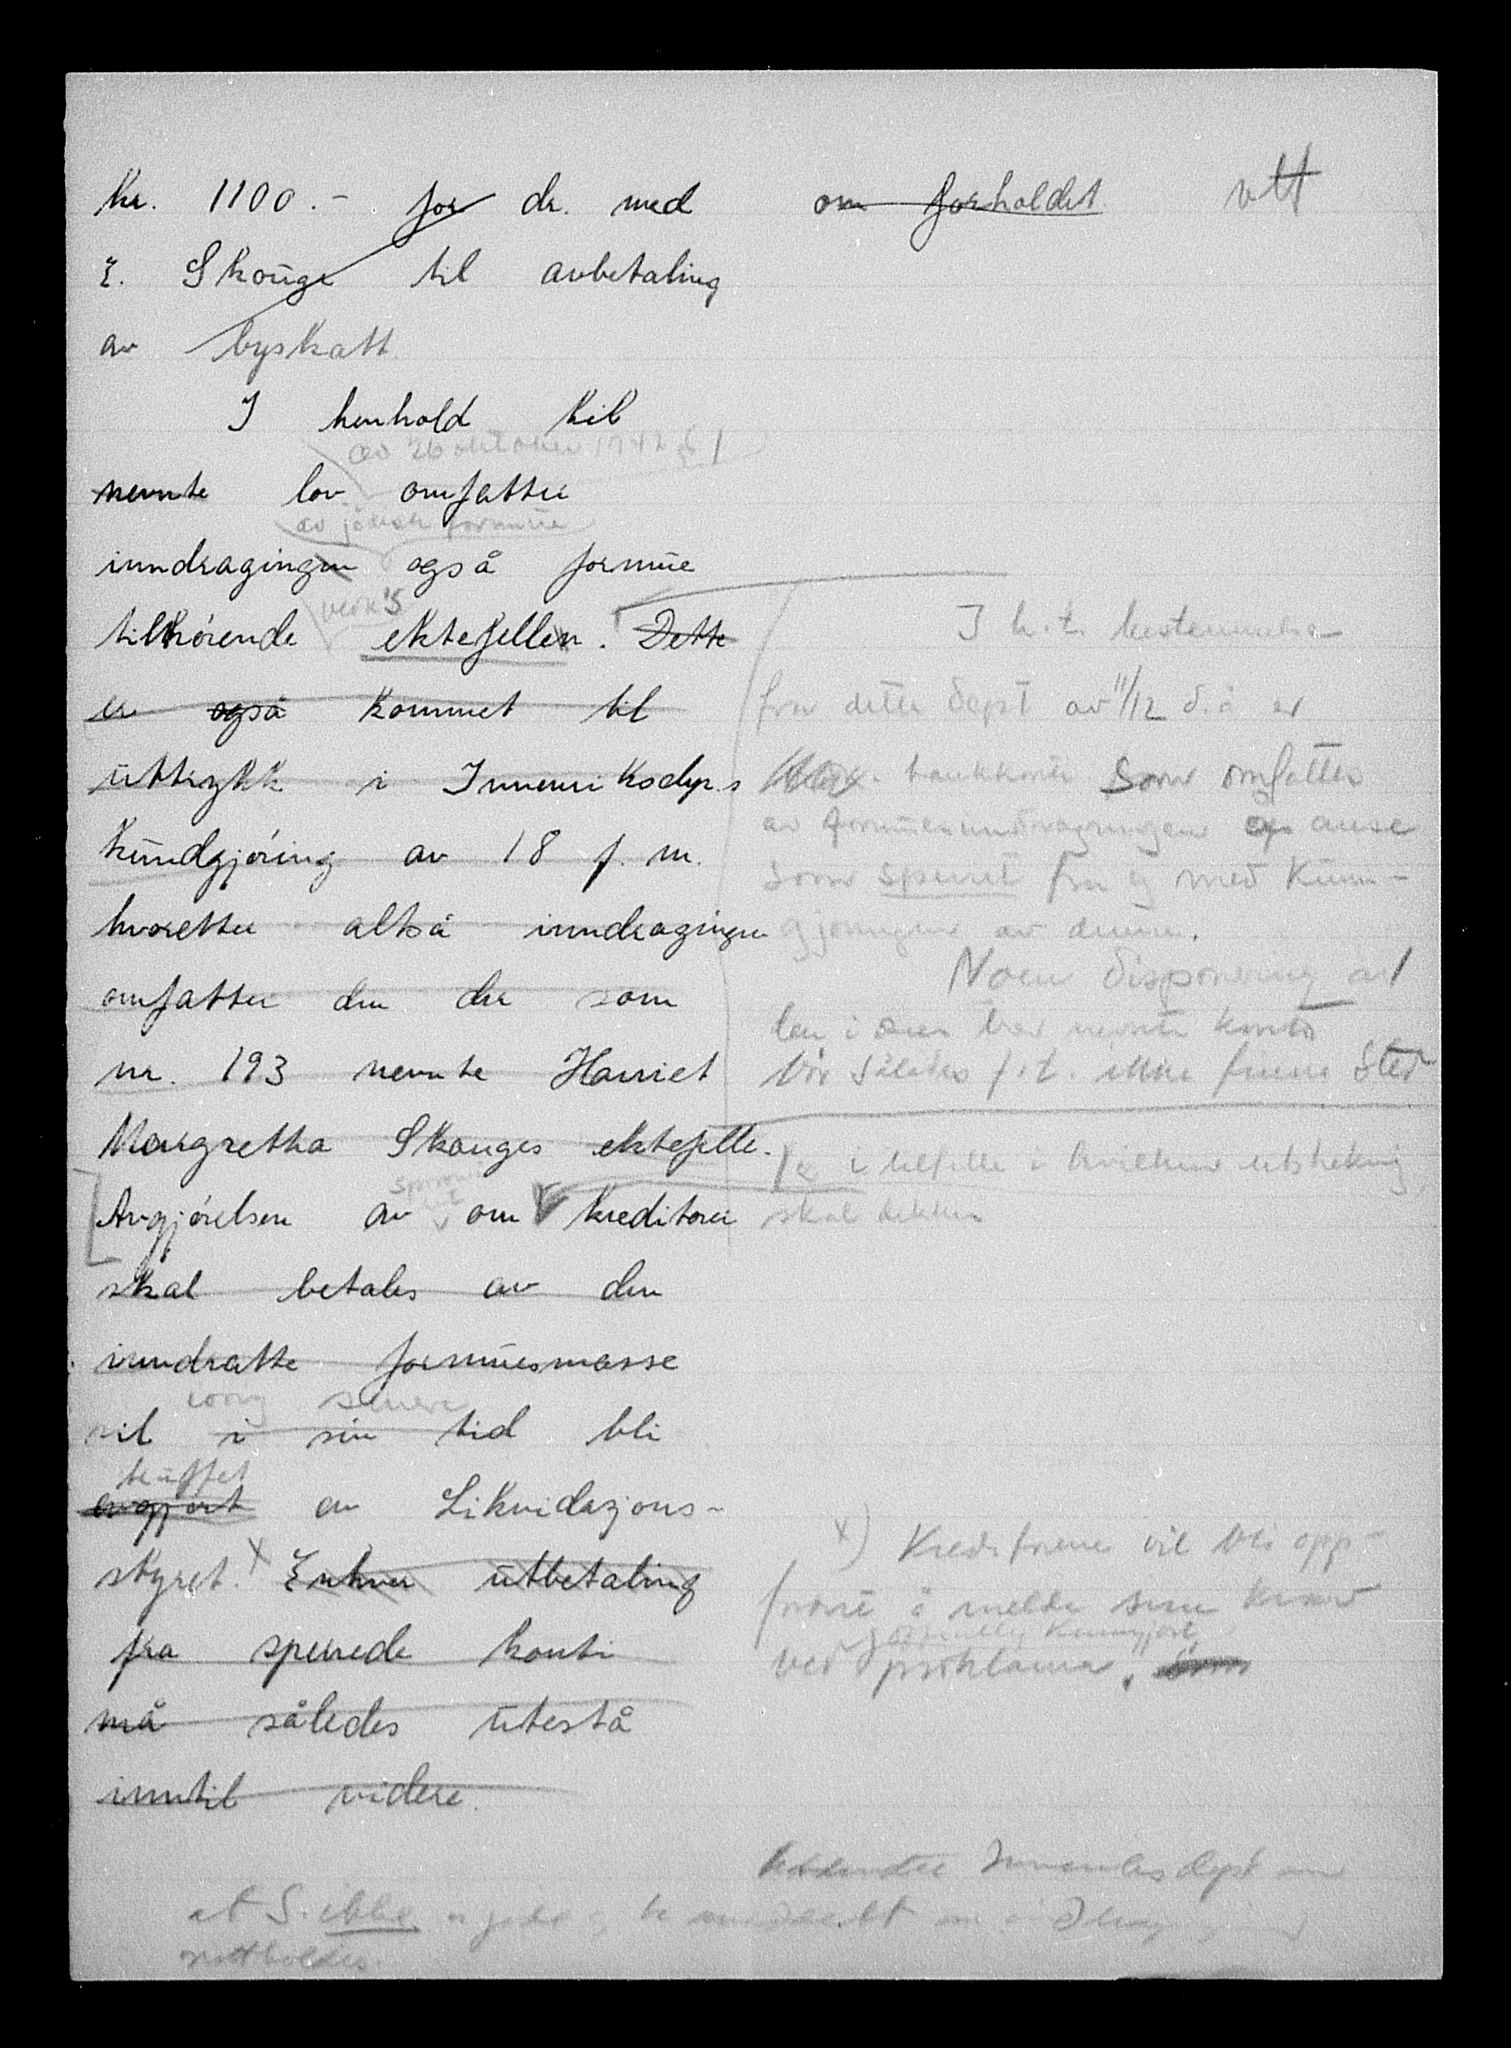 Kr. 1100.- for dr. med
E. Skouge til avbetaling
av byskatt.
I henhold til
av 26 oktober 1942 § 1
nevnte lov omfatter
av jødisk formue
inndragingen også formue
tilhørende ektefellen. Dette
er også kommet til
uttrykk i Innenriksdep.s
kundgjøring av 18 f. m.
hvoretter altså inndragingen
omfatter den der som
nr. 193 nevnte Harriet
Margretha Skouges ektefelle.
Avgjørelsen av om kreditorer
skal betales av den
inndratte formuesmasse
senere
vil i sin tid bli
truffet
avgjort av Likvidasjons-
styret. x Enhver utbetaling
fra sperrede konti
må således utestå
inntil videre.
om forholdet
I h.t. bestemmelse
fra dette dept av 11/12 d.å er
bankkonti som omfattes
av formuesinndragningen å anse
som sperret fra og med kunn-
gjøringen av denne.
Noen disponering av
nevnte konto
bør således f.t. ikke finne sted
i tilfelle i hvilken utstrekning
skal dekkes
x) Kreditorene vil bli opp-
fordret å melde sine krav
kunngjort
ved proklama.
Innenriksdept om
at S. ikke er jøde
opprettholdes.